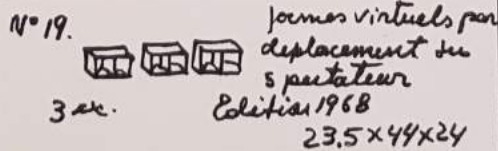 N° 19.
formes virtuels par
deplacement du
spectateur
3 ex.
Edition 1968
23.5 x 44 x 24